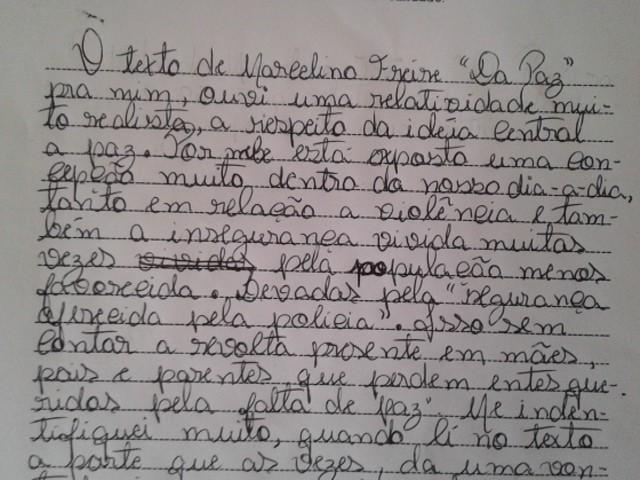 O texto de Marcelino Freire "Da Paz"
pra mim, ouvi uma relatividade mui-
to realista, a respeito da idéia central
a paz. Por nele está exposta uma con-
cepção muito dentro da nosso dia-a-dia,
tanto em relação a violência e tam-
bém a insegurança vivida muitas
vezes vividas pela população menos
favorecida. Devadas pela "segurança
oferecida pela policia". Isso sem
contar a revolta presente em mães,
pais e parentes, que perdem entes que-
ridos pela falta de paz". Me inden-
tifiquei muito, quando li no texto
a parte que as vezes, da uma von-